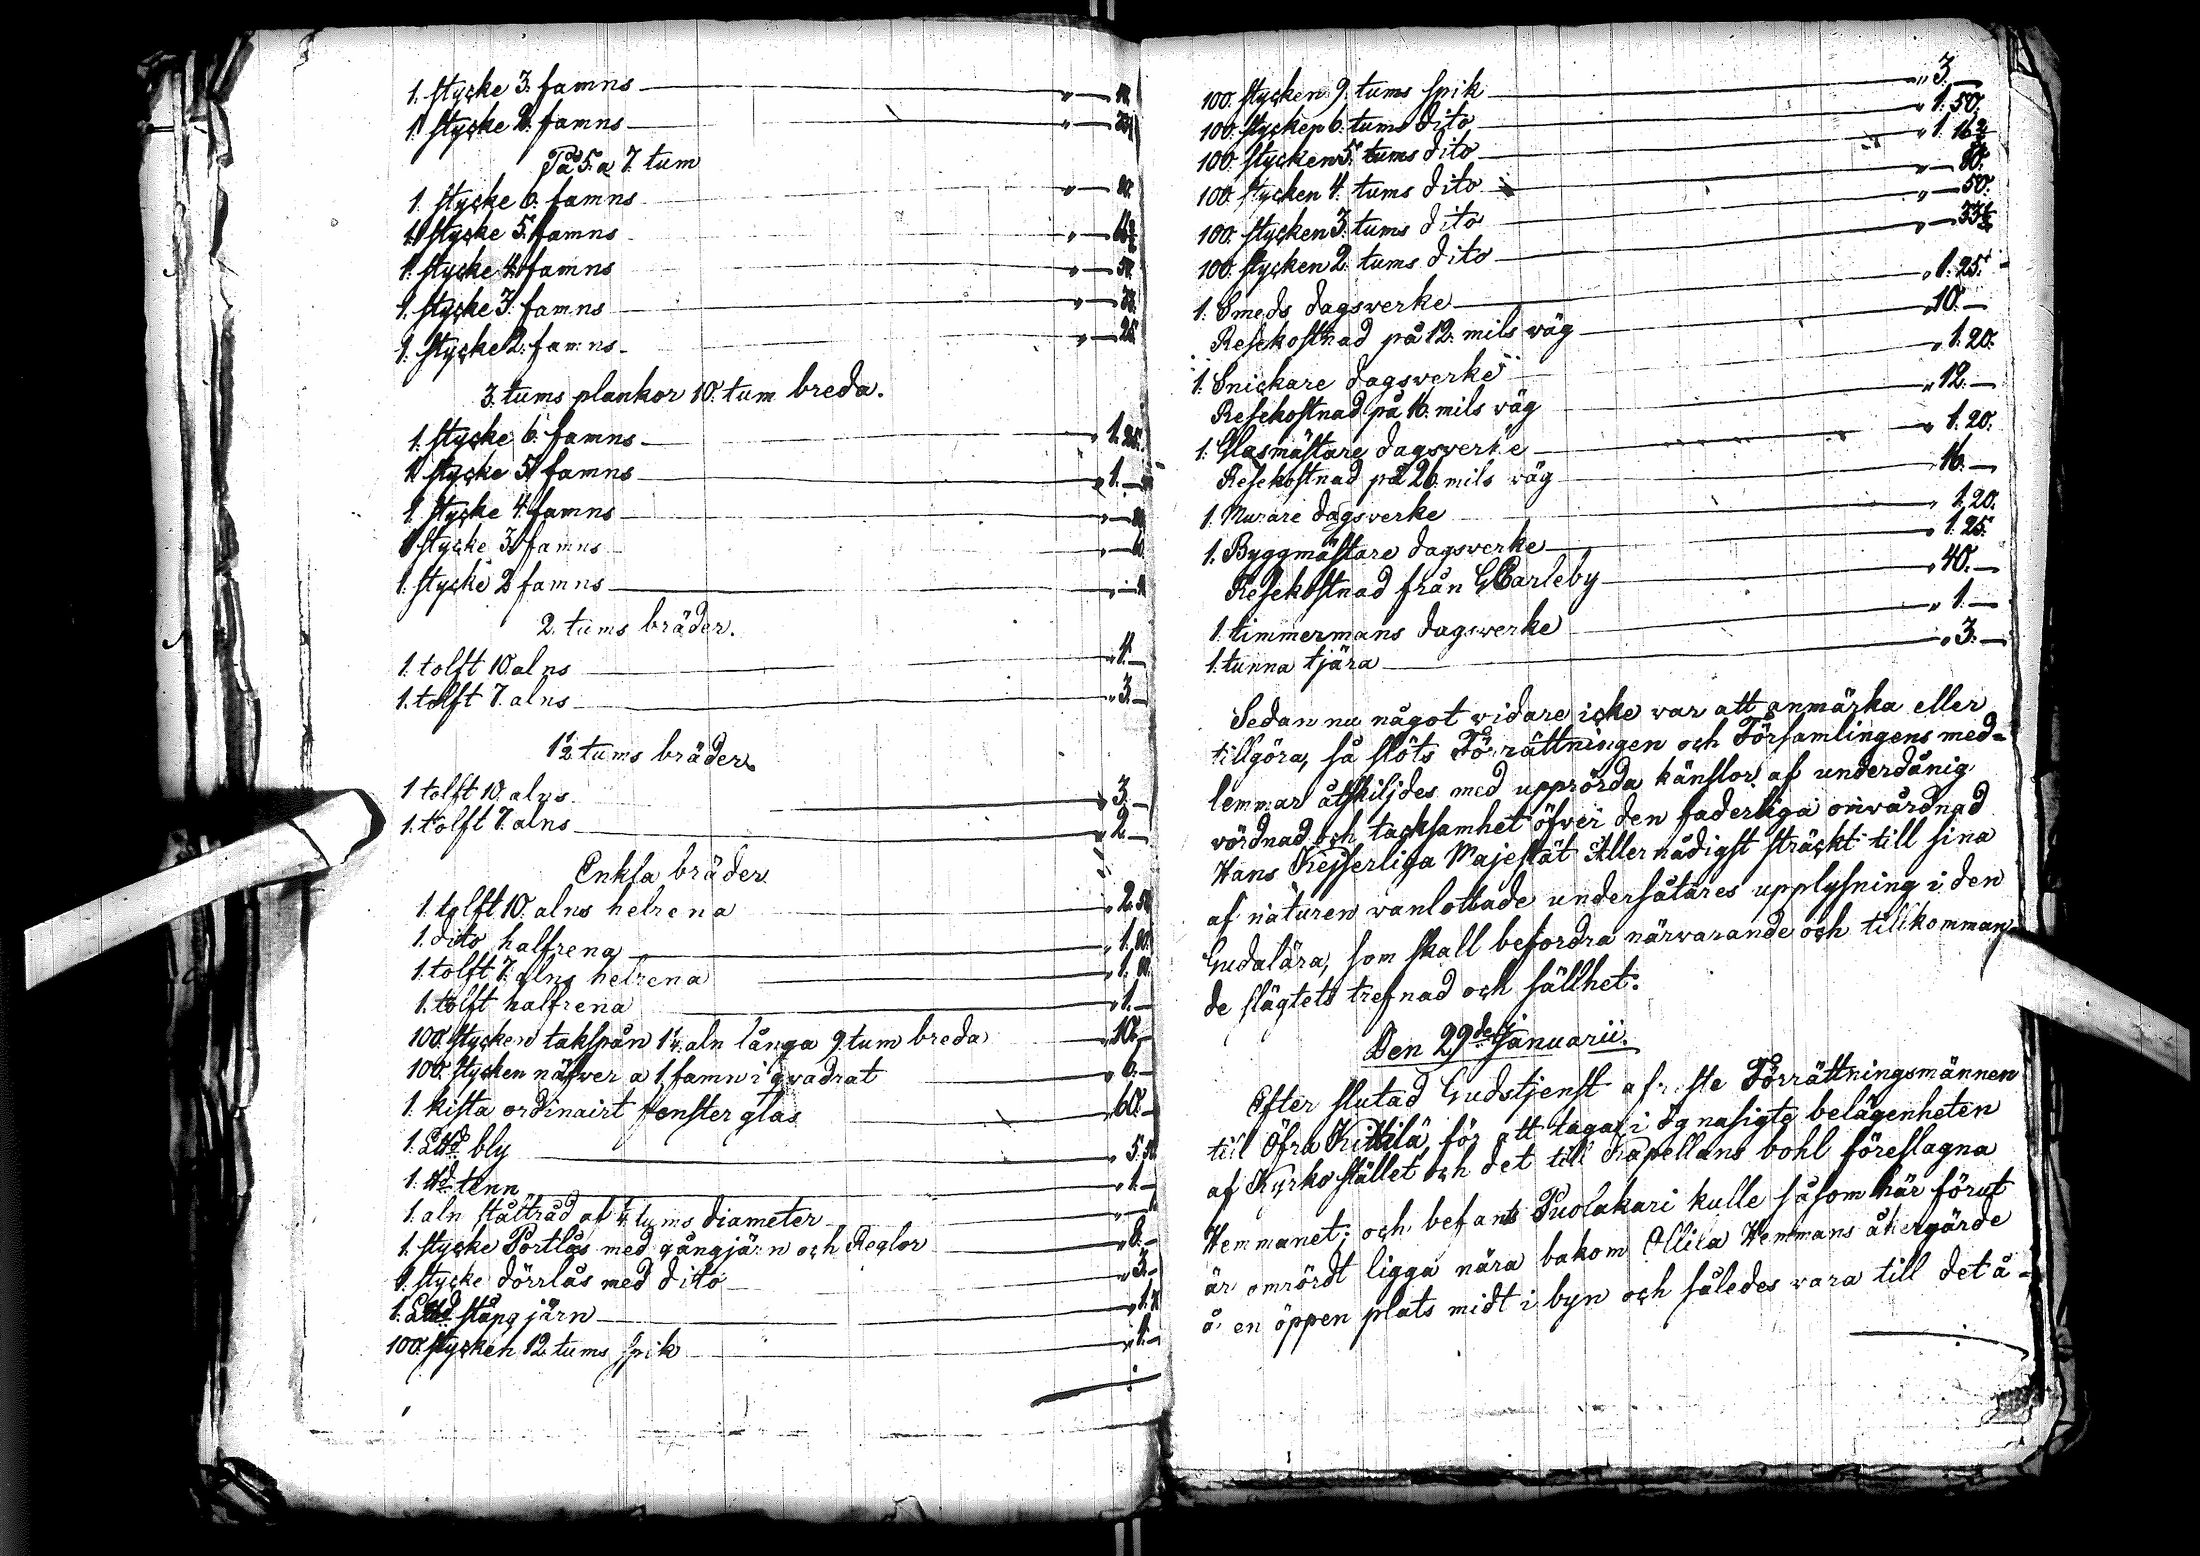 1. stycke 3. famns
1. stycke 2. famns
På 5. a 7. tum
1. stycke 6. famns
1. stycke 5. famns
1. stycke 4. famns 50.
1. stycke 3. famns
1. stycke 2. famns 25.
3. tums plankor 10. tum breda.
1. stycke 6. famns " 1. 25.
1. stycke 5. famns " 1. —
1. stycke 4. famns
1. stycke 3. famns
1. stycke 2 famns
2. tums bräder.
1. tolft 10. alns " 4. —
1. tolft 7. alns " 3. —
1½ tums bräder.
1 tolft 10. alns " 3. —
1. tolft 7. alns " 2. —
Enkla bräder
1. tolft 10. alns helrena " 2. 50
1. dito halfrena " 1.
1. tolft 7. alns helrena " 1.
1. tolft halfrena " 1. —
100. stycken takspån 1¼ aln långa 9. tum breda " 10. —
100. stycken näfwer a 1. famn i qvadrat " 6. —
1. kista ordinairt fönster glas " 60. —
1. L℔d bly " 5. 50
1. ℔d tenn " 1. —
1. aln ståltråd af ¼ tums diameter
1. stycke Portlås med gångjärn och Reglor " 6. —
1. stycke dörrlås med dito " 3. —
1. L℔d stång järn " 1.
100. stycken 12. tums spik " 4. —
100. stycken 9. tums spik " 3. —
100. stycken 6. tums dito " 1. 50.
100. stycken 5. tums dito " 1. 16⅔
100. stycken 4. tums dito " — 80.
100. stycken 3. tums dito " — 50.
100. stycken 2. tums dito " — 33⅓
1. Smeds dagswerke " 1. 25.
Resekostnad på 12. mils wäg " 10. —
1. Snickare dagswerke " 1. 20.
Resekostnad på 16. mils wäg " 12. —
1. Glasmästare dagswerke " 1. 20.
Resekostnad på 26. mils wäg " 16. —
1. Murare dagswerke " 1. 20.
1. Byggmästare dagswerke " 1. 25.
Resekostnad från GCarleby " 40. —
1. timmermans dagswerke " 1. —
1. tunna tjära " 3. —
Sedan nu något widare icke war att anmärka eller
tillgöra, så slöts Förrättningen och Församlingens med-
lemmar åtskiljdes med upprörda känslor af underdånig
wördnad och tacksamhet öfwer den faderliga omwårdnad
Hans Kejserliga Majestät Allernådigst sträckt till sina
af naturen wanlottade undersåtares upplysning i den
Gudalära, som skall befordra närwarande och tillkomman-
de slägtets trefnad och sällhet.
Den 29de Januarii.
Efter slutad Gudstjenst afreste Förrättningsmännen
till Öfra Kittilä, för att taga i ögnasigte belägenheten
af Kyrko stället och det till Kapellans bohl föreslagna
Hemmanet; och befants Puolakari kulle såsom här förut
är omrördt ligga nära bakom Ollila Hemmans åkergärde
å en öppen plats midt i byn och således wara till det å-